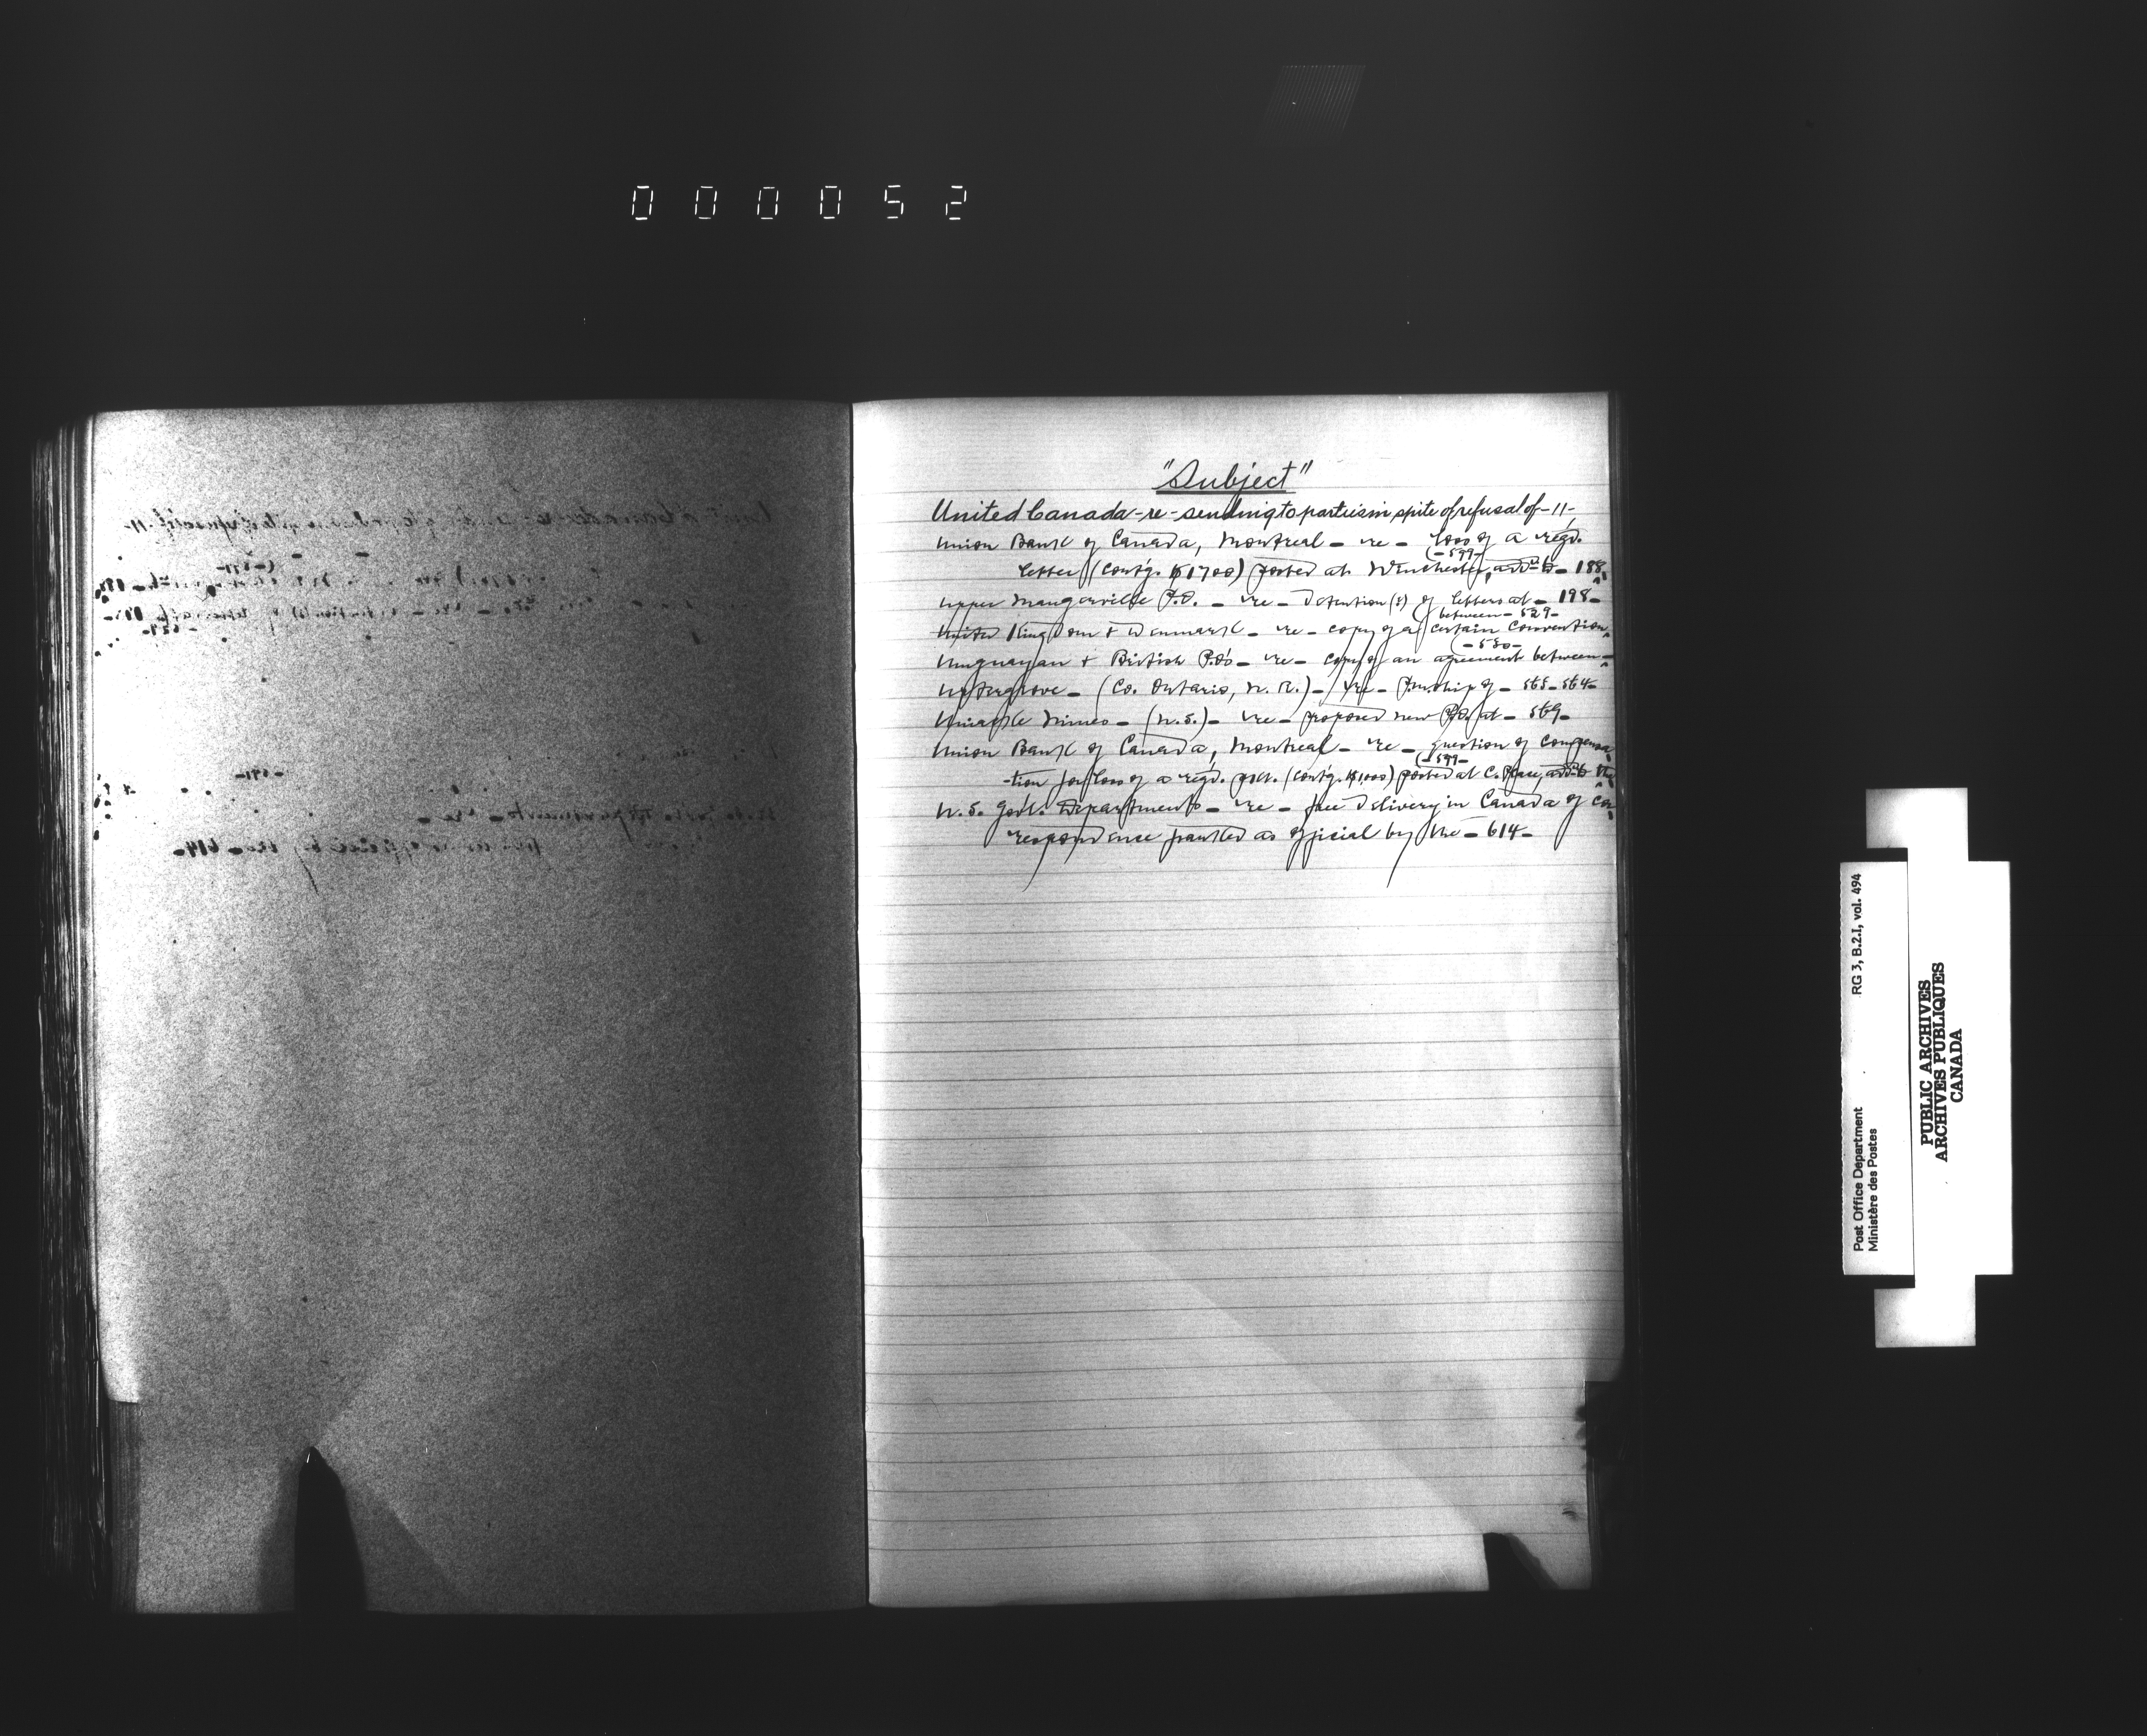 000052
"Subject"
United Canada - re - sending to parties in spite of refusal of - 11 -
Union Bank of Canada, Montreal - re - loss of a regd.
(- 599 -
letter (contg. $1700) posted at Winchester, addd. to - 188
Upper Maugerville P.O. - re - detention(s) of letters at - 198 -
(between - 529 -
United Kingdom & Denmark - re - copy of a certain Convention
(- 530 -
Uruguayan & British P.O's - re - copy of an agreement between -
Uptergrove - (Co. Ontario, N. R.) - re - P.m.ship of - 565 - 564 -
Uniacke Mines - (N.S.) - re - proposed new P.O. at - 569 -
Union Bank of Canada, Montreal - re - question of compensa
(- 599 -
-tion for loss of a regd. pckt. (contg. $1,000) posted at C. Place, addd. to the
U.S. Govt. Departments - re - free delivery in Canada of cor
respondence franked as official by the - 614 -
Post Office Department RG 3, B.2.I, vol. 494
Ministère des Postes
PUBLIC ARCHIVES
ARCHIVES PUBLIQUES
CANADA